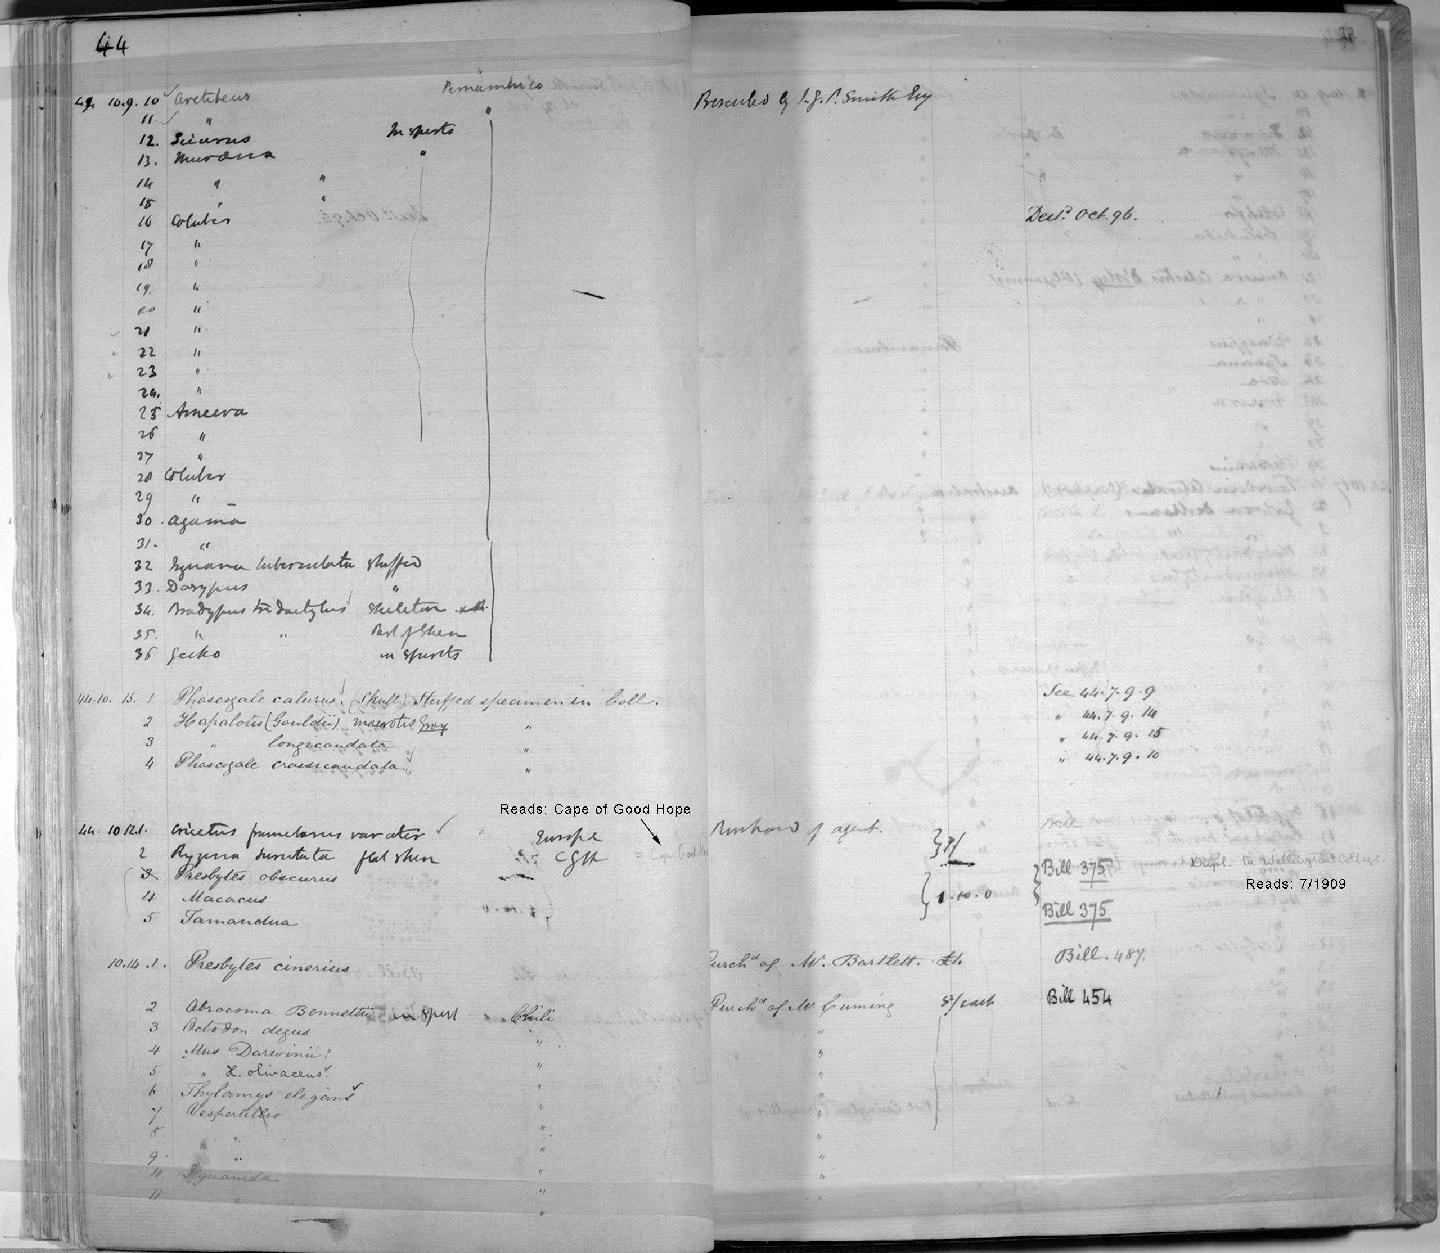 44
44. 10.9. 10 Arctibeus Pernambuco Presented by J. P. Smith Esq
11 " "
12. Sciurus In spirits
13. Muraena "
14 " "
15 " "
16 Coluber Dest.d Oct. 96.
17 "
18 "
19. "
20 "
21 "
22 "
23 "
24. "
25 Ameeva
26 "
27 "
28 Coluber
29 "
30. Agama
31. "
32 Iguana tuberculata stuffed
33. Dasypus "
34. Bradypus tridactylus Skeleton
35. " " Part of Skin
36 Gecko in spirits
44. 10. 15. 1 Phascogale calurus (Skull) Stuffed specimen in Coll. See 44. 7. 9. 9
2 Hapalotis (Gouldii) macrotis Gray " " 44. 7. 9. 14
3 " longicaudata " " 44. 7. 9. 15
4 Phascogale crassicaudata " " 44. 7. 9. 10
Reads: Cape of Good Hope
44. 10 12.1. Cricetus frumetarius var ater Europe Purchased of agent. Bill
2 Ryzena suricata flat skin CGH = Cape Good Hope Bill 375 Dupl. To Wellington College.
3 Presbytes obscurus Reads: 7/1909
4 Macacus 1. 10. 0
5 Tamandua Bill 375
10. 14. 1. Presbytes cinerius Purchd of Mr. Bartlett. Bill. 487.
2 Abracoma Bennettii in spirit Chili Purchd of Mr Cuming 5/ each Bill 454
3 Octodon degus " "
4 Mus Darwinii? " "
5 " H. olivaceus " "
6 Thylamys elegans " "
7 Vespertilio " "
8 " " "
9. " " "
10 Iguanidae " "
11 " "